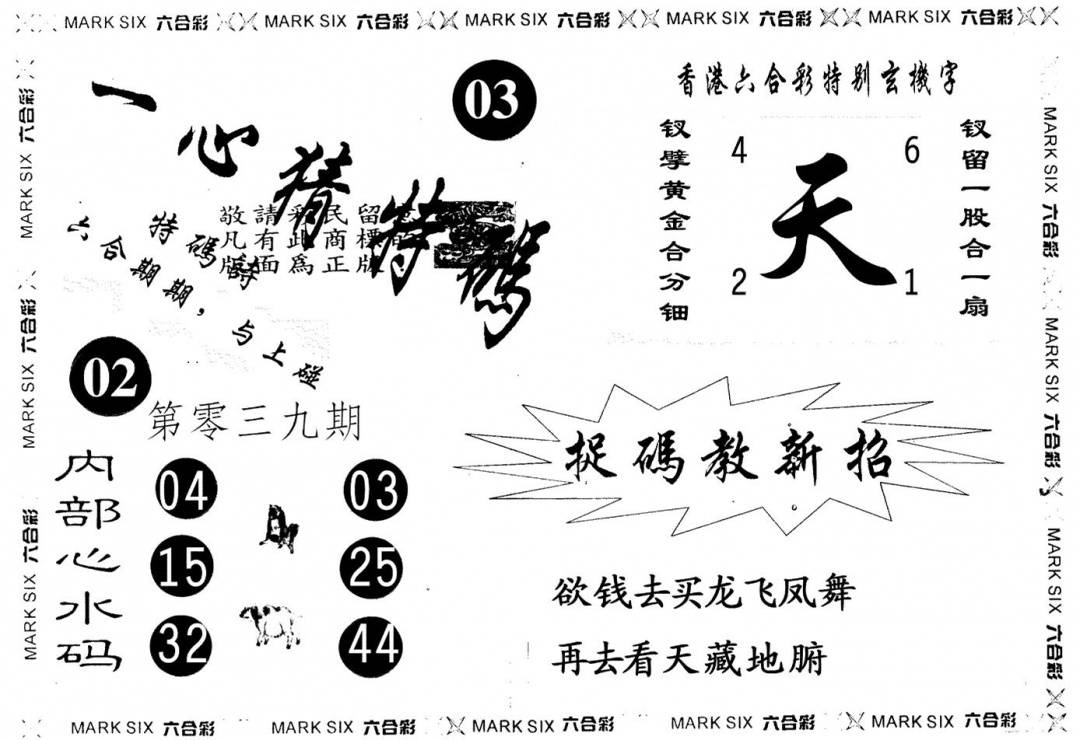 MARK SIX 六合彩 MARK SIX 六合彩 MARK SIX 六合彩 MARK SIX 六合彩 MARK SIX 六合彩
MARK SIX 六合彩 MARK SIX 六合彩 MARK SIX 六合彩
一心猜特碼
03
敬請彩民留
凡有此商標
版面為正版
特碼詩
六合期期，与上碰
02
第零三九期
内部心水码
04 03
15 25
32 44
香港六合彩特别玄機字
钗擘黄金合分钿
4 6
天
2 1
钗留一股合一扇
捉碼教新招
欲钱去买龙飞凤舞
再去看天藏地腑
MARK SIX 六合彩 MARK SIX 六合彩 MARK SIX 六合彩
MARK SIX 六合彩 MARK SIX 六合彩 MARK SIX 六合彩 MARK SIX 六合彩 MARK SIX 六合彩